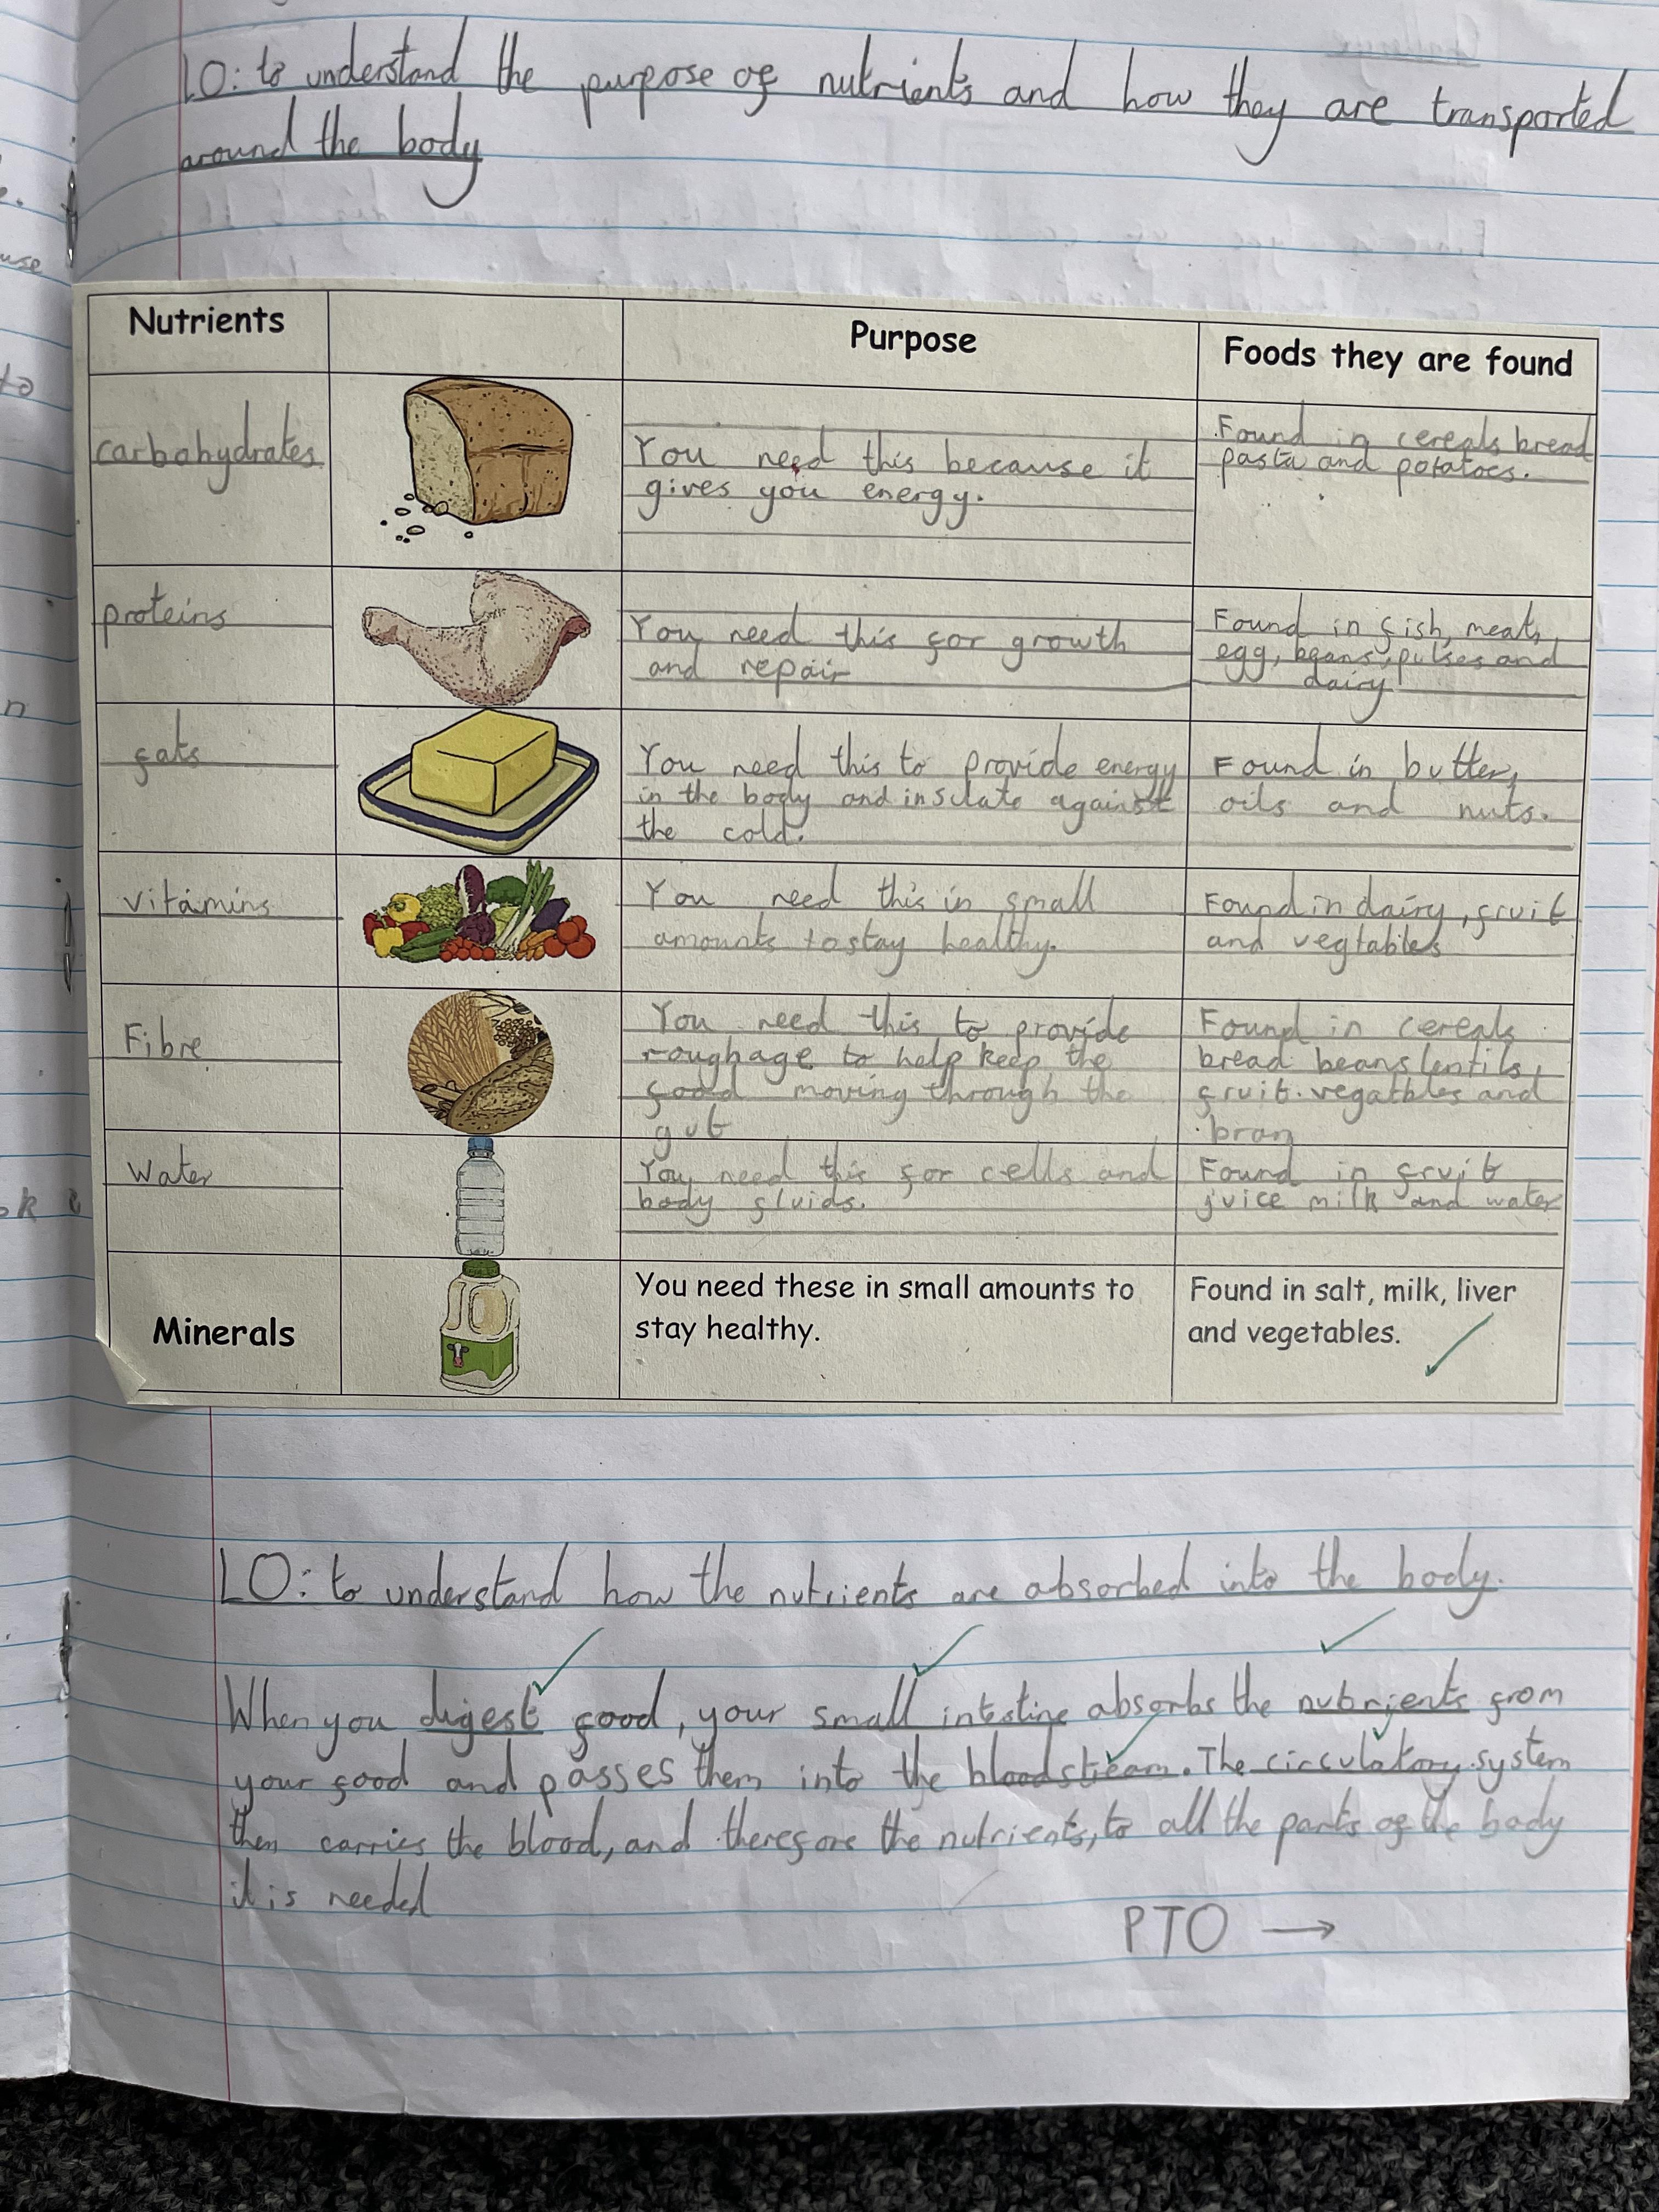 LO: to understand the purpose of nutrients and how they are transported
around the body
Nutrients
Purpose
Foods they are found
carbohydrates
You need this because it
gives you energy.
Found in cereals bread
pasta and potatoes.
proteins
You need this for growth
and repair
Found in fish, meat,
egg, beans, pulses and
dairy
fats
You need this to provide energy
in the body and insulate against
the cold.
Found in butter,
oils and nuts.
vitamins
You need this in small
amounts to stay healthy.
Found in dairy, fruit
and vegtables
Fibre
You need this to provide
roughage to help keep the
food moving through the
gut
Found in cereals
bread beans lentils,
fruit. vegatbles and
bran
Water
You need this for cells and
body fluids.
Found in fruit
juice milk and water
Minerals
You need these in small amounts to
stay healthy.
Found in salt, milk, liver
and vegetables.
LO: to understand how the nutrients are absorbed into the body.
When you digest food, your small intestine absorbs the nutrients from
your food and passes them into the bloodstream. The circulatory system
then carries the blood, and therefore the nutrients, to all the parts of the body
it is needed
PTO →